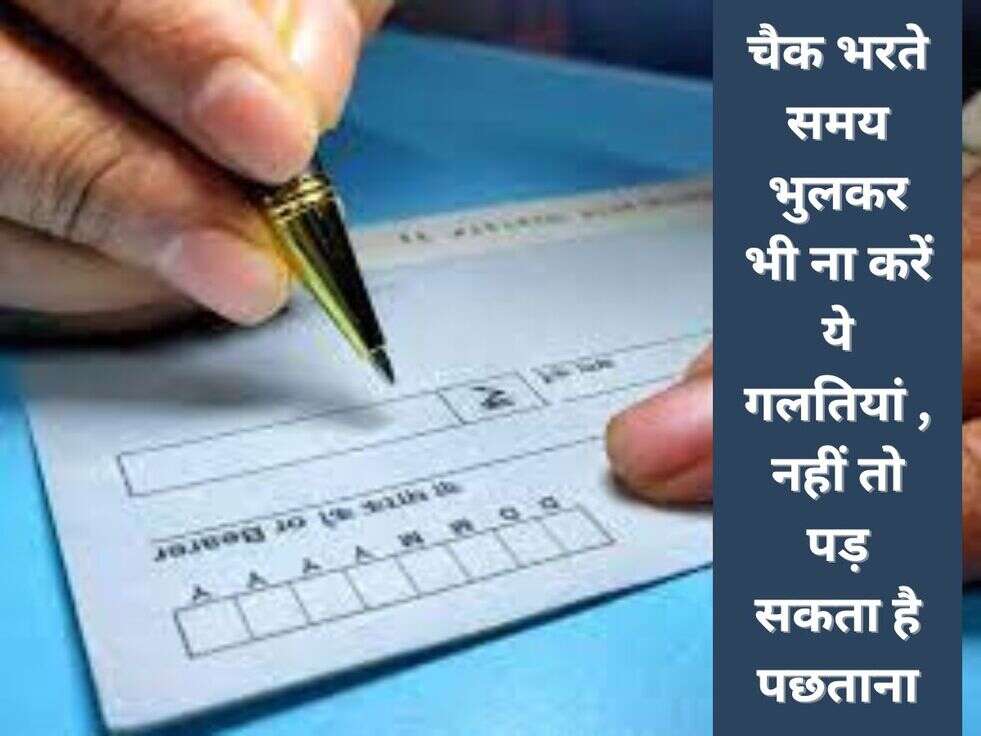 चैक भरते
समय
भुलकर
भी ना करें
ये
गलतियां ,
नहीं तो
पड़
सकता है
पछताना
या धारक को or Bearer
D D M M Y Y Y Y